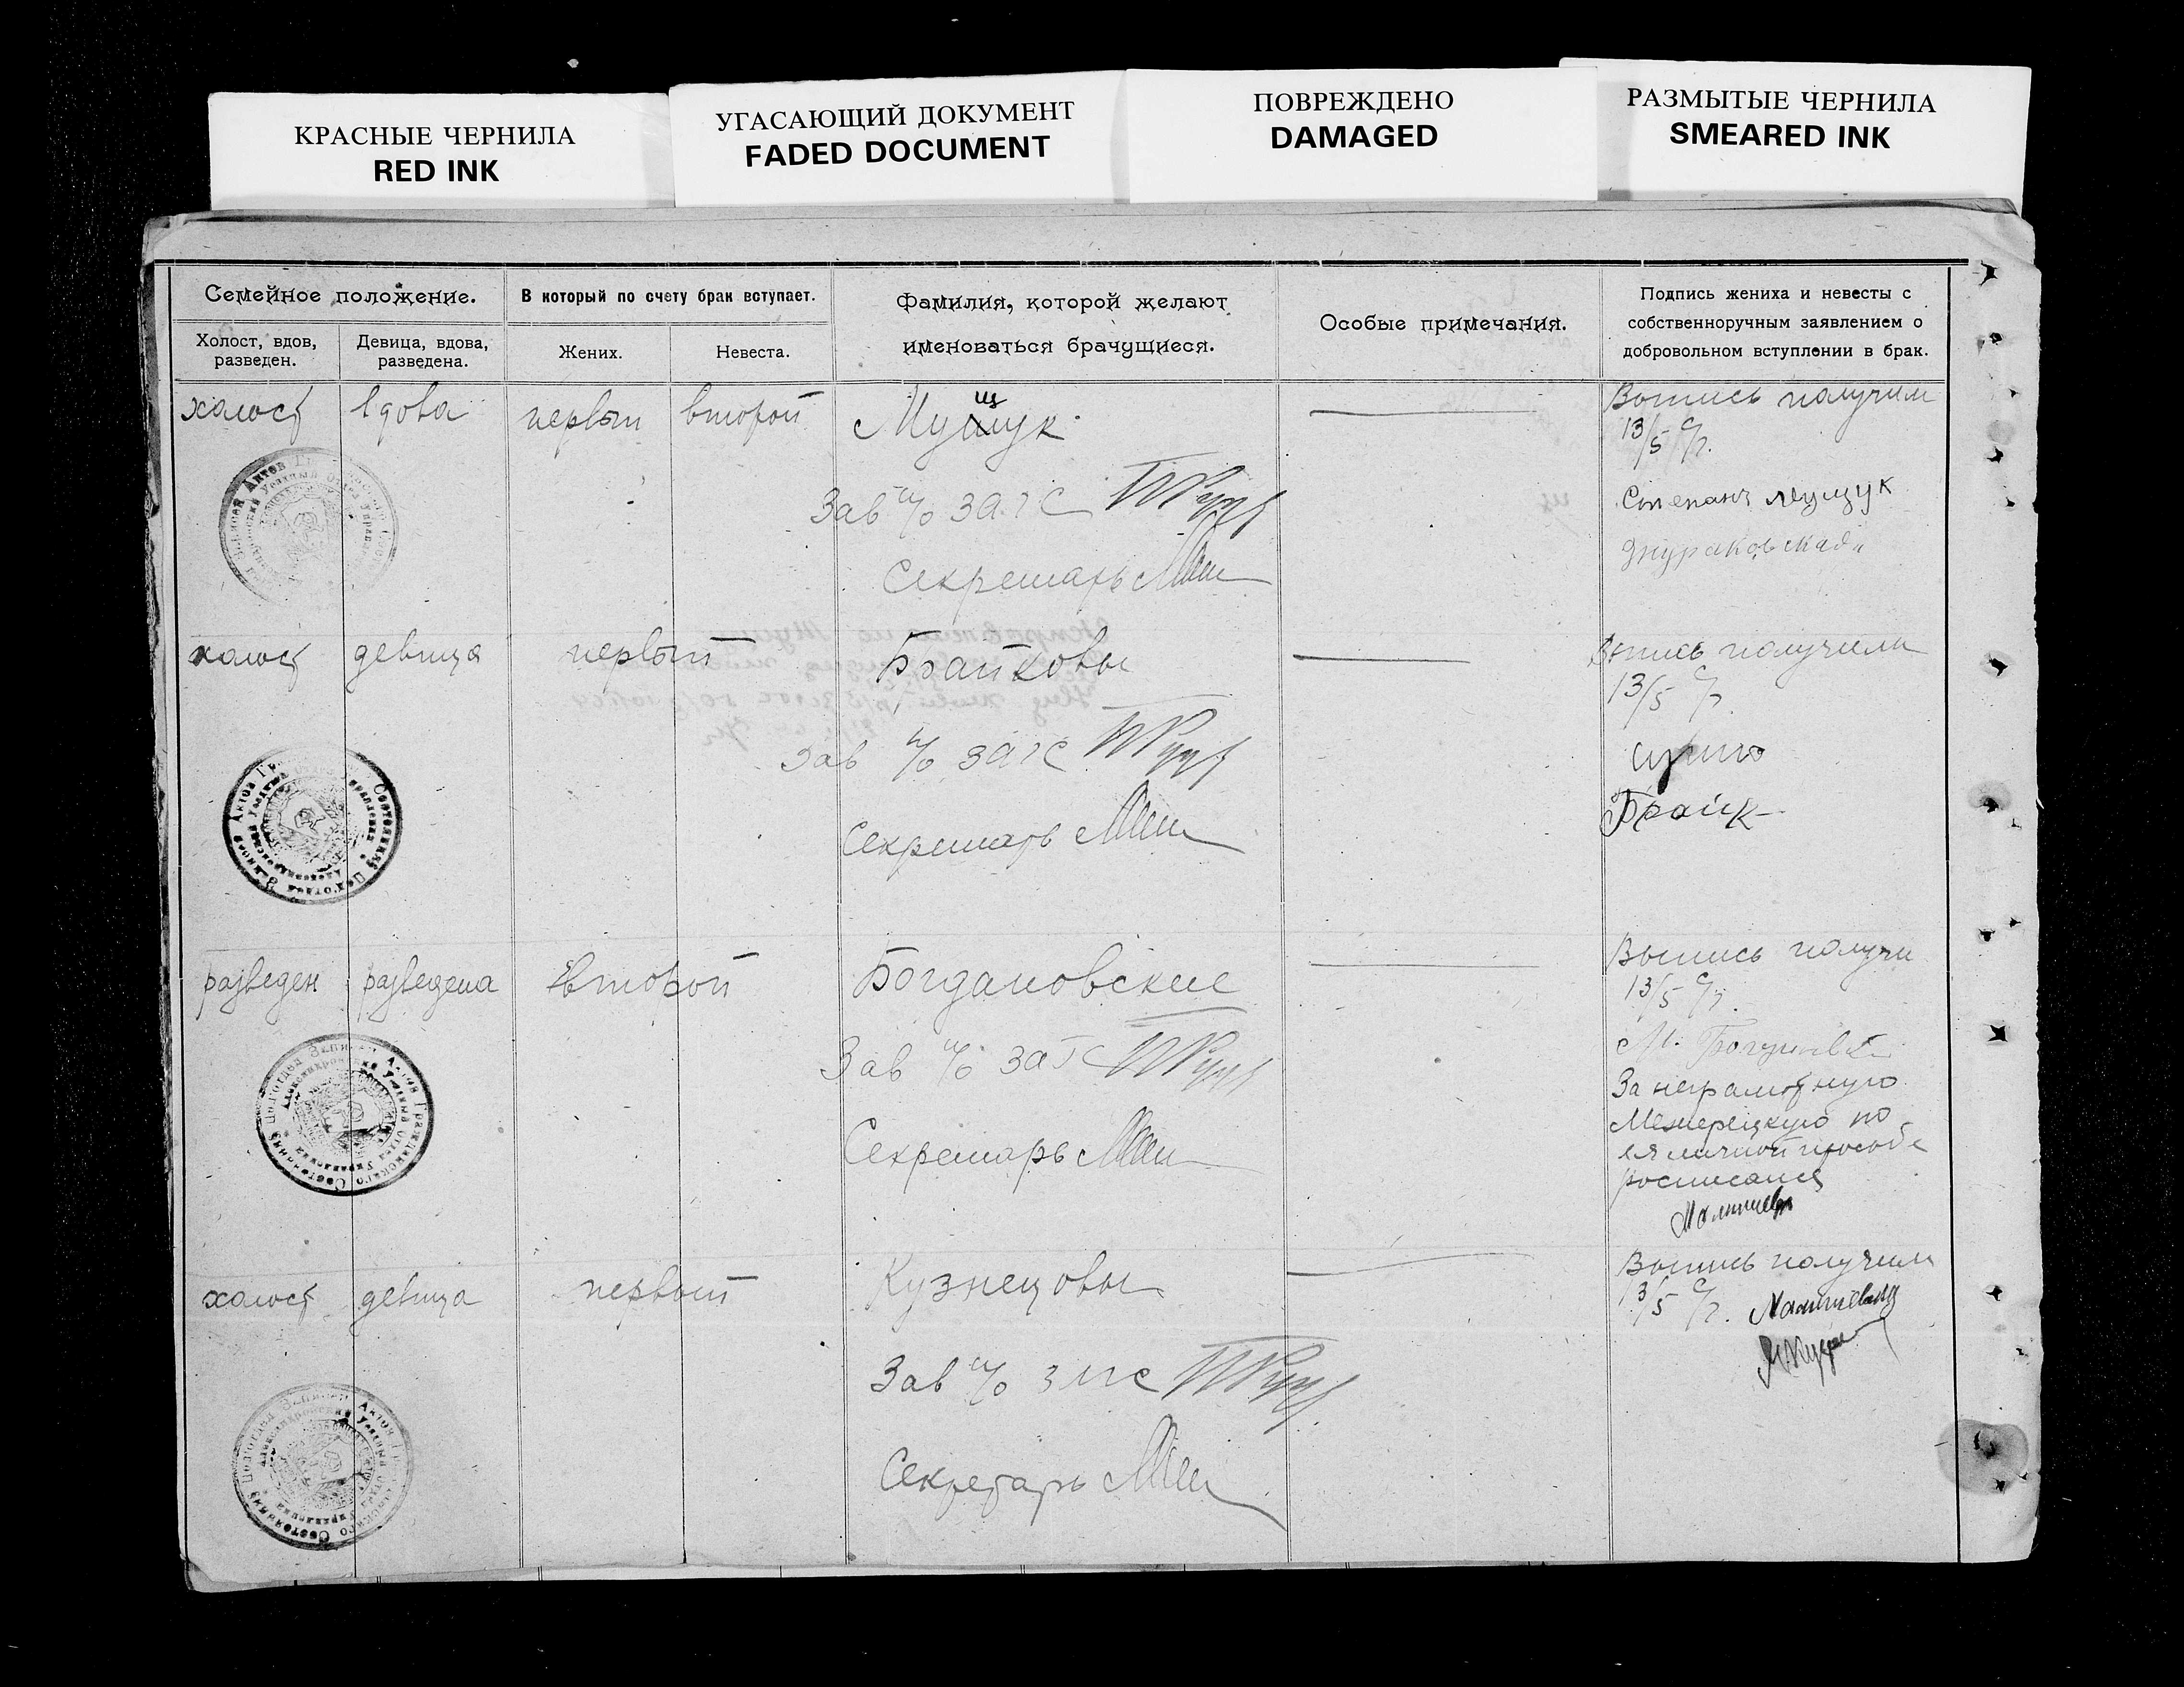 КРАСНЫЕ ЧЕРНИЛА
RED INK
УГАСАЮЩИЙ ДОКУМЕНТ
FADED DOCUMENT
ПОВРЕЖДЕНО
DAMAGED
РАЗМЫТЫЕ ЧЕРНИЛА
SMEARED INK
Семейное положение.
В который по счету брак вступает.
Фамилия, которой желают
именоваться брачущиеся.
Особые примечания.
Подпись жениха и невесты с
собственноручным заявлением о
добровольном вступлении в брак.
Холост, вдов,
разведен.
Девица, вдова,
разведена.
Жених.
Невеста.
холост вдова первый второй Мущук
Выпись получили
13/5 с/г.
Зав п/о ЗАГС
Степанъ Мущук
Секретарь
холост девица первый Брайковы
Выпись получили
13/5 с/г.
Зав п/о ЗАГС
Брайк
Секретарь
разведен разведена второй Богдановские
Выпись получи
13/5 с/г.
Зав п/о ЗАГС
М.
За неграмотную
по
ея личной прозьбе
росписался
Секретарь
холост девица первый Кузнецовы
Выпись получили
13/5 с/г.
Зав п/о ЗАГС
Секретарь